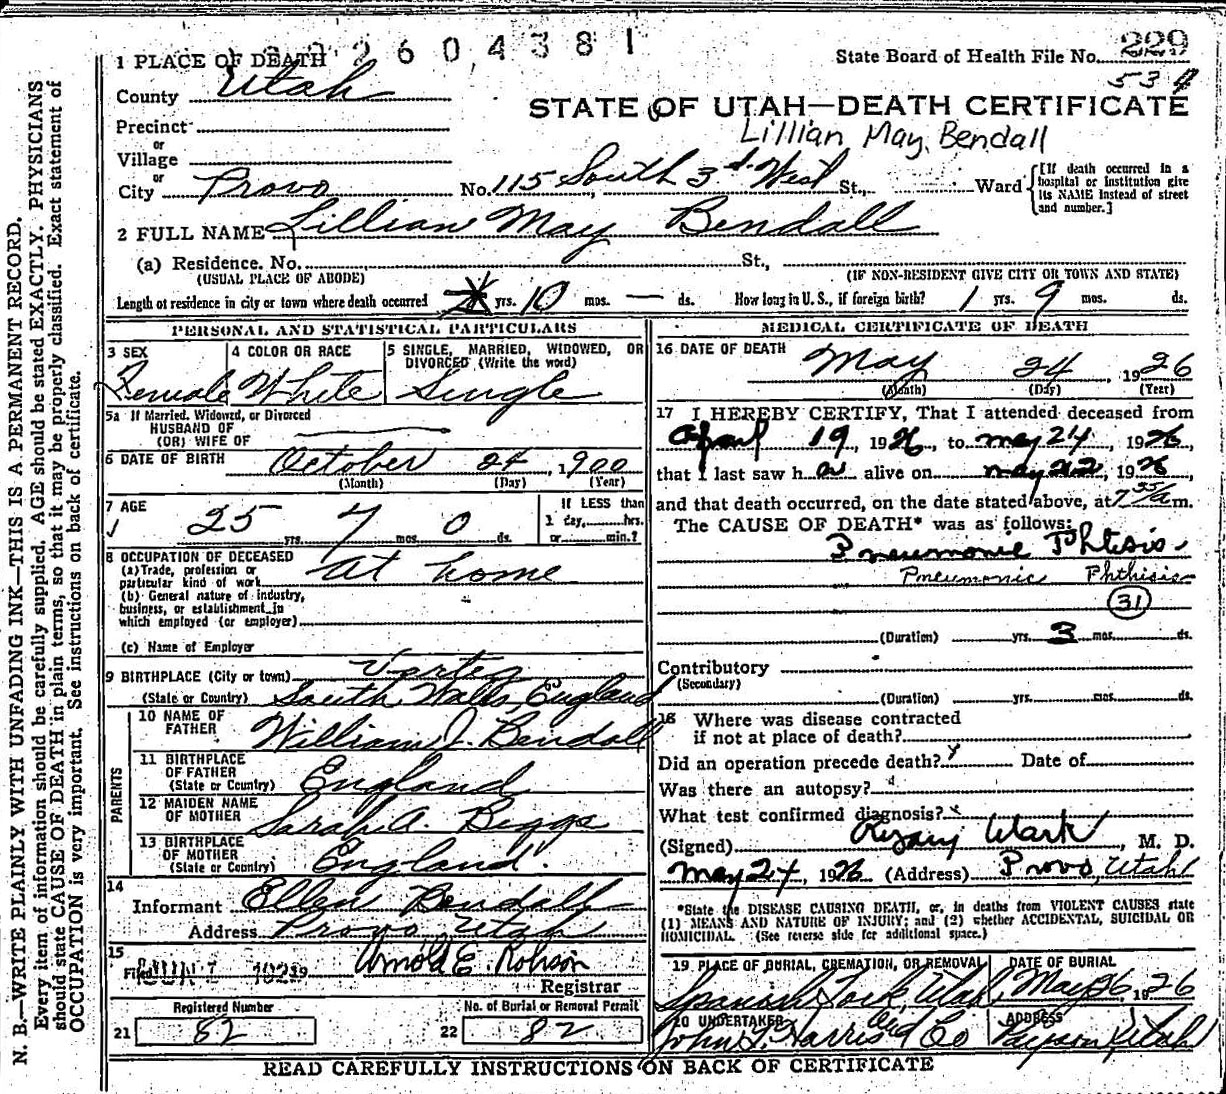 2604381
State Board of Health File No. 229
534
1 PLACE OF DEATH
County Utah
STATE OF UTAH—DEATH CERTIFICATE
Lillian May Bendall
Precinct
or
Village
or
City Provo No. 115 South 3d West St., Ward
[If death occurred in a
hospital or institution give
its NAME instead of street
and number.]
2 FULL NAME Lillian May Bendall
(a) Residence. No. St.,
(USUAL PLACE OF ABODE) (IF NON-RESIDENT GIVE CITY OR TOWN AND STATE)
Length of residence in city or town where death occurred yrs. 10 mos. — ds. How long in U. S., if foreign birth? 1 yrs. 9 mos. ds.
PERSONAL AND STATISTICAL PARTICULARS
3 SEX 4 COLOR OR RACE 5 SINGLE, MARRIED, WIDOWED, OR
DIVORCED (Write the word)
Female White Single
5a If Married, Widowed, or Divorced
HUSBAND OF
(OR) WIFE OF
6 DATE OF BIRTH October 24, 1900
(Month) (Day) (Year)
7 AGE 25 yrs. 7 mos. 0 ds.
If LESS than
1 day, hrs.
or min.?
8 OCCUPATION OF DECEASED
(a) Trade, profession or
particular kind of work at home
(b) General nature of industry,
business, or establishment in
which employed (or employer)
(c) Name of Employer
9 BIRTHPLACE (City or town)
(State or Country) South Walls, England
PARENTS
10 NAME OF
FATHER William J. Bendall
11 BIRTHPLACE
OF FATHER
(State or Country) England
12 MAIDEN NAME
OF MOTHER Sarah A. Biggs
13 BIRTHPLACE
OF MOTHER
(State or Country) England
14
Informant Ellen Bendall
Address Provo, Utah
15
Filed JUN 7 Arnold E. Robison
Registrar
Registered Number No. of Burial or Removal Permit
21 82 22 82
MEDICAL CERTIFICATE OF DEATH
16 DATE OF DEATH May 24, 1926
(Month) (Day) (Year)
17 I HEREBY CERTIFY, That I attended deceased from
April 19, 1926, to May 24, 1926,
that I last saw her alive on May 22, 1926,
and that death occurred, on the date stated above, at 7 55/a m.
The CAUSE OF DEATH* was as follows:
Pneumonic Phtisis
Pneumonic Phthisis
31
(Duration) yrs. 3 mos. ds.
Contributory
(Secondary)
(Duration) yrs. mos. ds.
18 Where was disease contracted
if not at place of death?
Did an operation precede death? Date of
Was there an autopsy?
What test confirmed diagnosis?
(Signed) Clark, M. D.
May 24, 1926 (Address) Provo, Utah
*State the DISEASE CAUSING DEATH, or, in deaths from VIOLENT CAUSES state
(1) MEANS AND NATURE OF INJURY; and (2) whether ACCIDENTAL, SUICIDAL OR
HOMICIDAL. (See reverse side for additional space.)
19 PLACE OF BURIAL, CREMATION, OR REMOVAL DATE OF BURIAL
Spanish Fork, Utah, May 26, 1926
20 UNDERTAKER ADDRESS
John T. Harris Und Co Payson Utah
READ CAREFULLY INSTRUCTIONS ON BACK OF CERTIFICATE
N. B.—WRITE PLAINLY WITH UNFADING INK—THIS IS A PERMANENT RECORD.
Every item of information should be carefully supplied. AGE should be stated EXACTLY. PHYSICIANS
should state CAUSE OF DEATH in plain terms, so that it may be properly classified. Exact statement of
OCCUPATION is very important. See instructions on back of certificate.